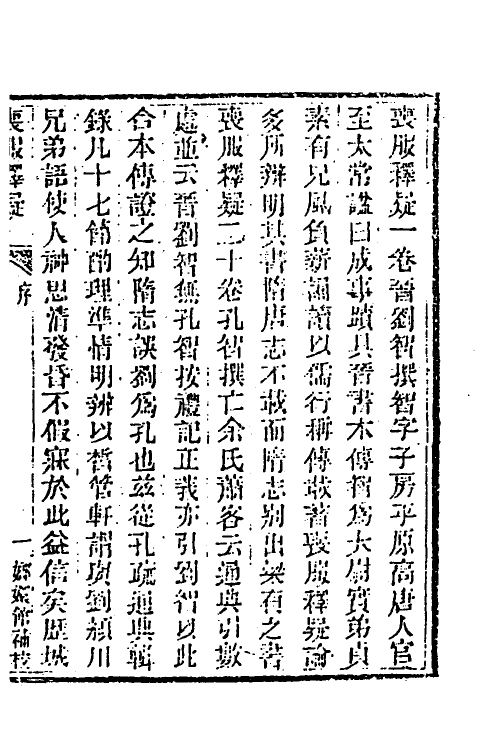 喪服釋疑一卷晉劉智撰智字子房平原高唐人官
至太常謚曰成事蹟具晉書本傳智爲大尉寔弟貞
素有兄風負薪誦讀以儒行稱傳載著喪服釋疑論
多所辯明其書隋唐志不載而隋志別出梁有之書
喪服釋疑二十卷孔智撰亡余氏蕭客云通典引數
處並云晉劉智無孔智按禮記正義亦引劉智以此
合本傳證之知隋志誤劉爲孔也茲從孔疏通典輯
錄凡十七節酌理準情明辨以晳管輅謂與劉潁川
兄弟語使人神思清發昏不假寐於此益信矣歷城
喪服釋疑
序
一
嫏嬛館補校